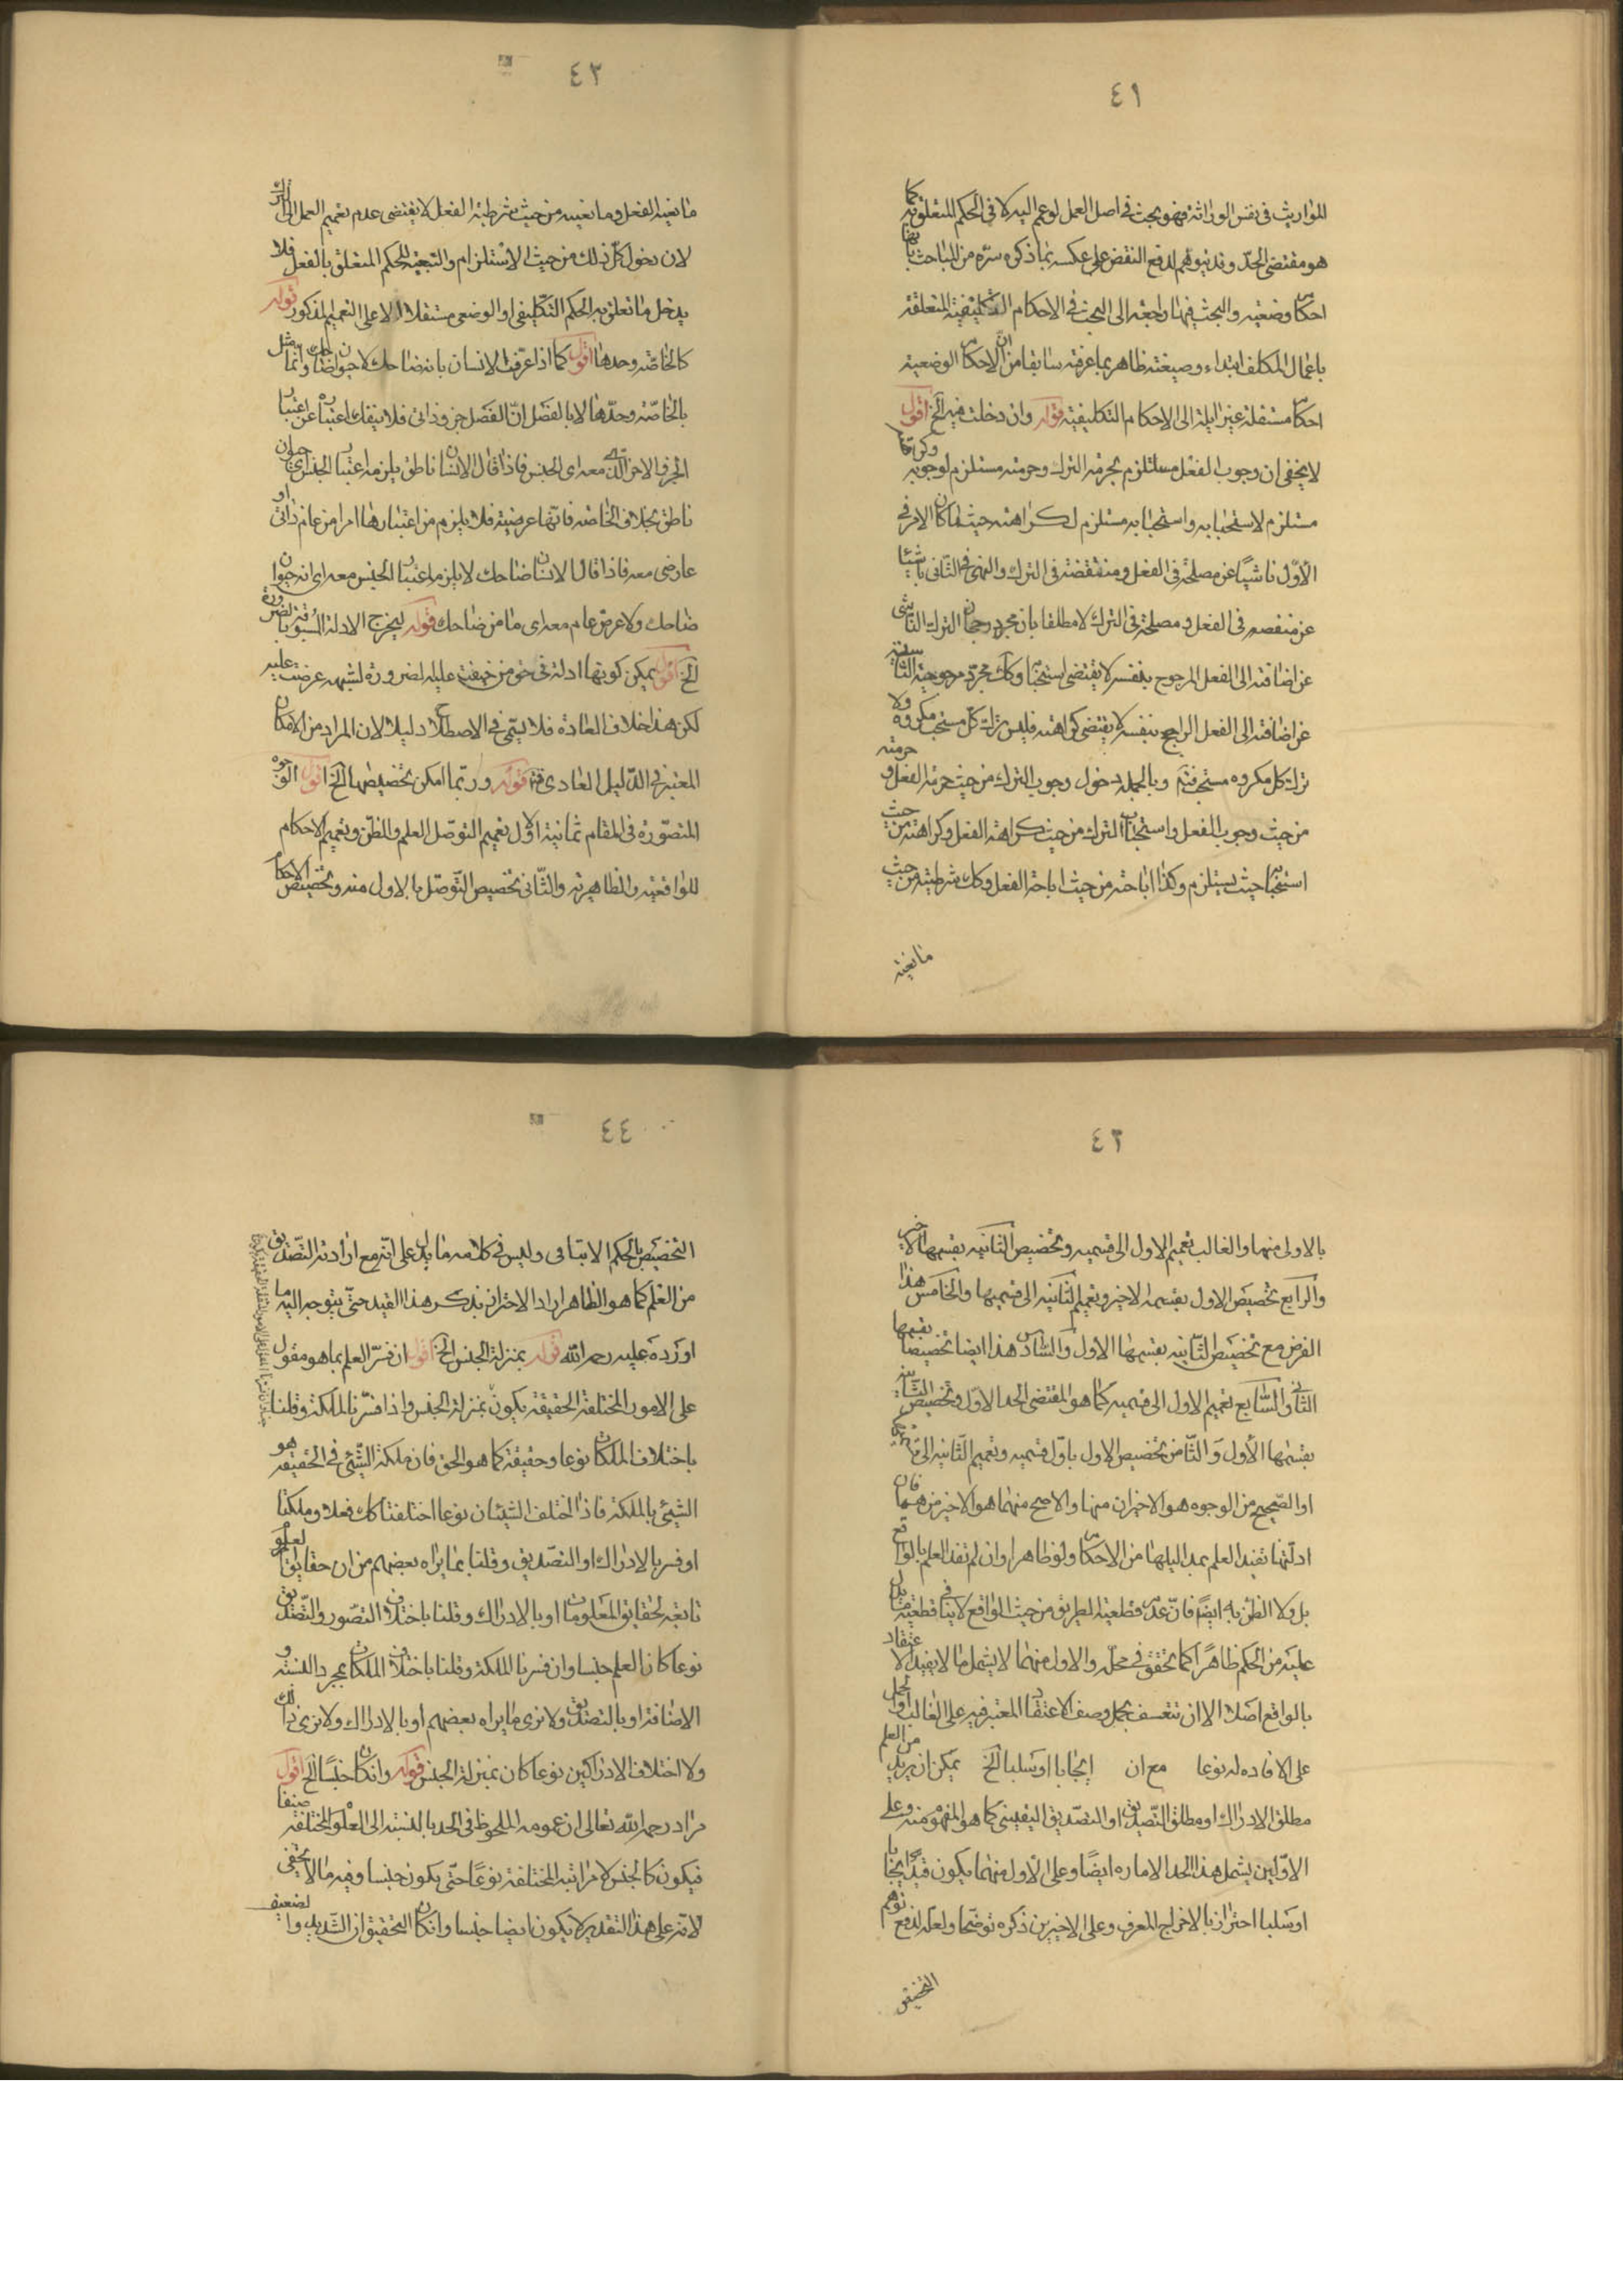 ٤١
المواريث فى نفس الوراثة فهو بحث فى اصل العمل لوعم اليه لا فى الحكم المتعلق به كما
هو مقتضى الحدّ وقد يتوهم لدفع النقض على عكسه بما ذكره سرّه من المباحث بانها
احكام وضعيه والبحث فيها راجعه الى البحث فى الاحكام التكليفية المتعلقة
باعمال المكلف ابتداء وصيغته ظاهر بما عرفته سابقا من ان الاحكام الوضعية
احكام مستقلة غير ايلة الى الاحكام التكليفية قوله وان دخلت فيه الخ اقول
لا يخفى ان وجوب الفعل مستلزم بحرمة الترك وحرمته مستلزم لوجوبه وكراهة
مستلزم لاستحبابه واستحبابه مستلزم لكراهته حيث ما كان الامر فى
الاوّل ناشيا عن مصلحة فى الفعل ومنقصة فى الترك والنهى فى الثانى ناشيا
عن منقصه فى الفعل و مصلحة فى الترك لا مطلقا بان مجرد رجحان الترك الناشى
عن اضافته الى الفعل المرجوح بنفسه لا يقتضى استحبابا وكك مجرّد مرجوحيته الناشئه
عن اضافته الى الفعل الراجح بنفسه لا يقتضى كراهته فليس ترك كلّ مستحب مكروه ولا
ترك كل مكروه مستحب فتم وبالجمله دخول وجوب الترك من حيث حرمة الفعل وحرمته
من حيث وجوب الفعل واستحباب الترك من حيث كراهة الفعل وكراهته من حيث
استحبابه حيث يستلزم وكذا اباحته من حيث اباحة الفعل وكك شرطيته من حيث
مانعية
٤٣
مانعية الفعل ومانعيته من حيث شرطية الفعل لا يقتضى عدم تعميم العمل الى الترك
لان دخول كلّ ذلك من حيث الاستلزام والتبعية للحكم المتعلق بالفعل فلا
يدخل ما تعلق به الحكم التكليفى او الوضعى مستقلا الا على التعميم المذكور قوله
كالخاصّة وحدها اقول كما اذا عرّفت الانسان بانه ضاحك لا حيوان ضاحك وانّما مثل
بالخاصّة وحدها لا بالفصل انّ الفصل جزء ذاتى فلا ينفك اعتباره عن اعتبار
الجزء الاخر الّذى معه اى الجنس فاذا قال الانسان ناطق يلزمه اعتبار الجنس اى حيوان
ناطق بخلاف الخاصه فانّها عرضية فلا يلزم من اعتبارها امرا من عام ذاتى او
عارضى معه فاذا قال الانسان ضاحك لا يلزمه اعتبار الجنس معه اى انه حيوان
ضاحك ولا عرض عام معه اى ما من ضاحك قوله ليخرج الادلة المسبوقة بالضرورة
الخ اقول يمكن كونها ادلة فى حق من خفيت عليه لضرورة لشبهه عرضت عليه
لكن هذا خلاف العادة فلا يسمّى فى الاصطلاح دليلا لان المراد من الامكان
المعتبر فى الدّليل العادى فتم قوله وربّما امكن تخصيصها الخ اقول الوجوه
المتصّورة فى المقام ثمانية الاوّل تعميم التوصّل العلم والظنّ وتعميم الاحكام
للواقعيه والظاهريه والثّانى تخصيص التّوصّل بالاول منه وتخصيص الاحكام
٤٢
بالاولى منها والغالب تعميم الاول الى قسميه وتخصيص الثانيه بقسمها الاخير
والرابع تخصيص الاول بقسمه الاخير وتعميم الثانيه الى قسميها والخامس هذا
الفرض مع تخصيص الثانيه بقسمها الاول والسّادس هذا ايضا تخصيصا بقسمها
الثانى والسّابع تعميم الاول الى قسميه كما هو المقتضى الحد الاوّل وتخصيص الثانيه
بقسمها الاول وَ الثّامن تخصيص الاول باوّل قسميه وتعميم الثّانيه الى قسميها
او الصّحيح من الوجوه هو الاخيران منها والاصح منهما هو الاخير منهما فان
ادلّتها تفيد العلم بمداليلها من الاحكام ولو ظاهرا وان لم تفد العلم بالواقع
بل ولا الظن به ايضا فانّ عدم قطعية الطريق من حيث الواقع لا ينافى قطعية ما يدل
عليه من الحكم ظاهرًا كما تحقق فى محله والاول منهما لا يشمل ما لا يفيد الاعتقاد
بالواقع اصلا الا ان تتعسف بحمل وصف الاعتقاد المعتبر فيه على الغالب او الحمل
على الافاده له نوعا مع ان ايجابا او سلبا الخ يمكن ان يريد من العلم
مطلق الادراك او مطلق التّصديق او التصديق اليقينى كما هو المفهوم منه وعلى
الاوّلين يشمل هذا الحد الاماره ايضًا وعلى الاول منهما يكون قيد ايجابا
او سلبا احترازا بالاخراج المعرف وعلى الاخيرين ذكره توضيحا ولعله لدفع توهم
التخصيص
٤٤
التخصيص بالحكم الايقاعى وليس فى كلامه ما يدل على انه مع ارادته التّصديق
من العلم كما هو الظاهر اراد الاحتراز بذكر هذا القيد حتّى يتوجه اليه ما
اورده عليه رحمه الله قوله بمنزلة الجنس الخ اقول ان فسّر العلم بما هو مقول
على الامور المختلفة الحقيقة يكون بمنزلة الجنس واذا فسّر بالملكة وقلنا
باختلاف الملكات نوعا وحقيقة كما هو الحق فان ملكة الشّئى فى الحقيقه هو
الشيئى بالملكة فاذا اختلف الشيئان نوعا اختلفتا كك فعلا وملكتا
او فسر بالادراك او التصّديق وقلنا بما يراه بعضهم من ان حقايق العلوم
تابعة لحقايق المعلومات او بالادراك وقلنا باختلاف التصّور والتّصديق
نوعا كان العلم جنسا وان فسر بالملكة وقلنا باختلاف الملكات بمجرد النسبة و
الاضافة او بالتصديق ولا نرى ما يراه بعضهم او بالادراك ولا نرى ذلك
ولا اختلاف الادراكين نوعا كان بمنزلة الجنس قوله وان كان جنسًا الخ اقول
مراد رحمه الله تعالى ان عمومه الملحوظ فى الحد بالنسبة الى العلوم المختلفة صنفا
فيكون كالجنس لا مراتبه المختلفة نوعًا حتّى يكون جنسا وفيه ما لا يخفى
لانّه على هذا التقدير لا يكون ايضا جنسا وان كان التحقيق ان الشّديد والضعيف